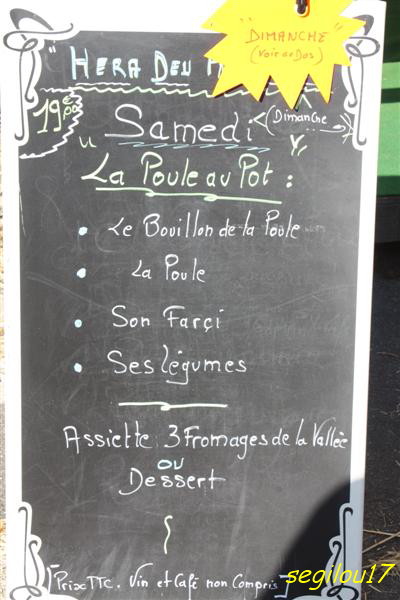 "DIMANCHE"
(Voir au Dos)
"HERA DEU
19€00
Samedi
(Dimanche
"La Poule au Pot :
• Le Bouillon de la Poule
• La Poule
• Son Farçi
• Ses légumes
Assiette 3 Fromages de la Vallée
ou
Dessert
Prix TTC. Vin et Café non Compris
segilou17